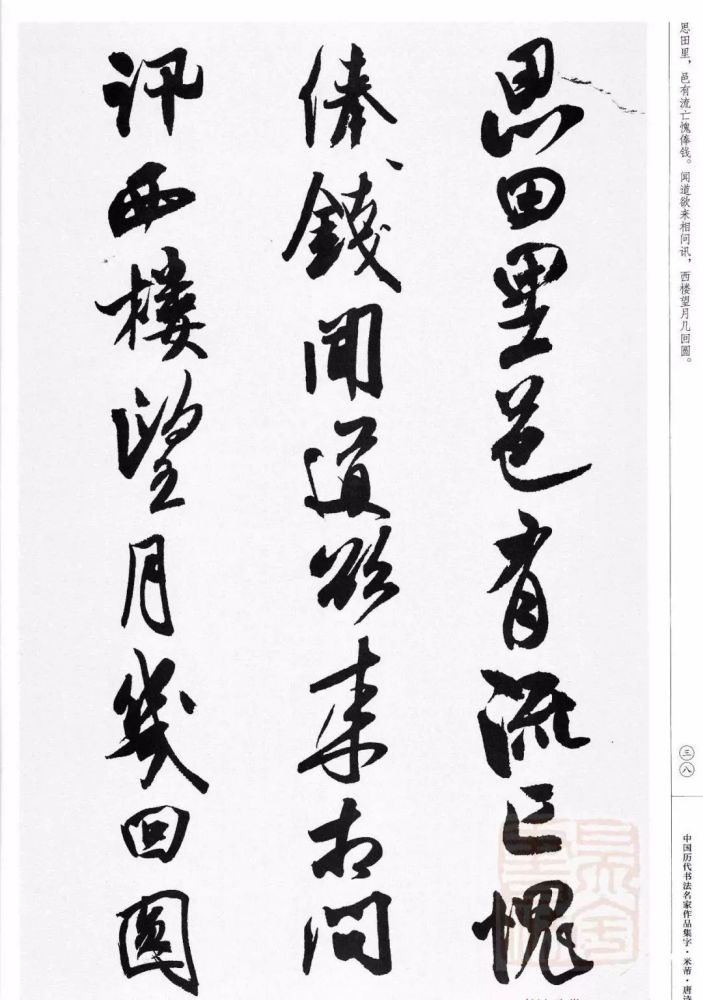 思田里邑有流亡愧
俸錢聞道欲來相問
訊西樓望月幾回圓
思田里，邑有流亡愧俸钱。闻道欲来相问讯，西楼望月几回圆。
三八
中国历代书法名家作品集字·米芾·唐诗